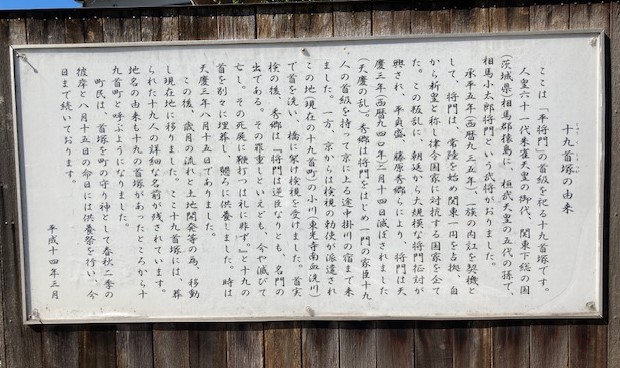 十九首塚の由来
ここは「平将門」の首級を祀る十九首塚です。
人皇六十一代朱雀天皇の御代、関東下総の国
(茨城県)相馬郡猿島に、桓武天皇の五代の孫で、
相馬小太郎将門という武将がおりました。
承平五年(西暦九三五年)一族の内訌を契機と
して、将門は、常陸を始め関東一円を占拠、自
から新皇と称し律令国家に対抗する国家を企て
た。この叛乱に、朝廷から大規模な将門征討が
興され、平貞盛、藤原秀郷らにより、将門は天
慶三年(西暦九四〇年)二月十四日滅ぼされました
(天慶の乱)。秀郷は将門をはじめ一門の家臣十九
人の首級を持って京に上る途中掛川の宿まで来
ました。一方、京からは検視の勅使が派遣され
この地(現在の十九首町)の小川(東光寺南血洗川)
で首を洗い、橋に架け検視を受けました。首実
検の後、秀郷は『将門は逆臣なりとも、名門の
出である。その罪重しといえども、今や滅びて
亡し。その屍に鞭打つは礼に非ず。』と十九の
首を別々に埋葬、懇ろに供養しました。時は
天慶三年八月十五日でありました。
この後、歳月の流れと土地開発等の為、移動
し現在地に移りました。ここ十九首塚には、葬
られた十九人の詳細な名前が残されています。
地名の由来も十九の首塚があったところから十
九首町と呼ぶようになりました。
町民は、首塚を町の守り神として春秋二季の
彼岸と八月十五日の命日には供養祭を行い、今
日まで続いております。
平成十四年三月